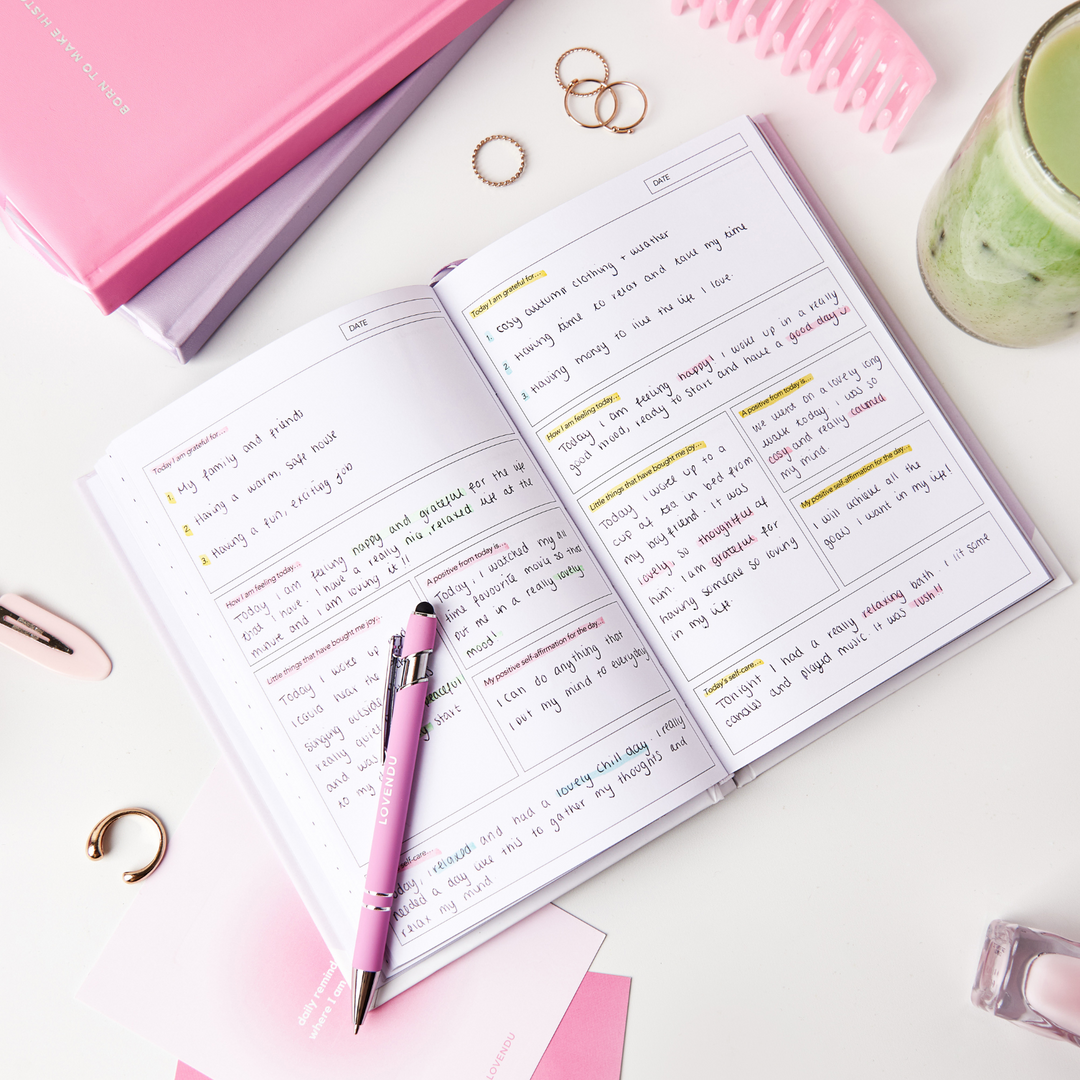 BORN TO MAKE HISTO
DATE
Today I am grateful for...
1. My family and friends
2. Having a warm, safe house
3. Having a fun, exciting job
How I am feeling today...
Today I am feeling happy and grateful for the life
that I have. I have a really nice, relaxed life at the
minute and I am loving it!!
Little things that have bought me joy...
Today I woke up
I could hear the
singing outside
really quiet peaceful
and was start
to my
A positive from today is...
Today, I watched my all
time favourite movie so that
put me in a really lovely
mood!
My positive self-affirmation for the day...
I can do anything that
I put my mind to everyday
self-care...
Today, I relaxed and had a lovely chill day. I really
needed a day like this to gather my thoughts and
relax my mind
DATE
Today I am grateful for...
1. cosy autumn clothing + weather
2. Having time to relax and take my time
3. Having money to live the life I love.
How I am feeling today...
Today I am feeling happy! I woke up in a really
good mood, ready to start and have a good day
Little things that have bought me joy...
Today I woke up to a
cup of tea in bed from
my boyfriend. It was
lovely, so thoughtful of
him! I am grateful for
having someone so loving
in my life.
A positive from today is...
We went on a lovely long
walk today I was so
cosy and really calmed
my mind.
My positive self-affirmation for the day...
I will achieve all the
goals I want in my life!
Today's self-care...
Tonight I had a really relaxing bath. I lit some
candles and played music. It was lush!!
LOVENDU
daily remind
where I am
LOVENDU